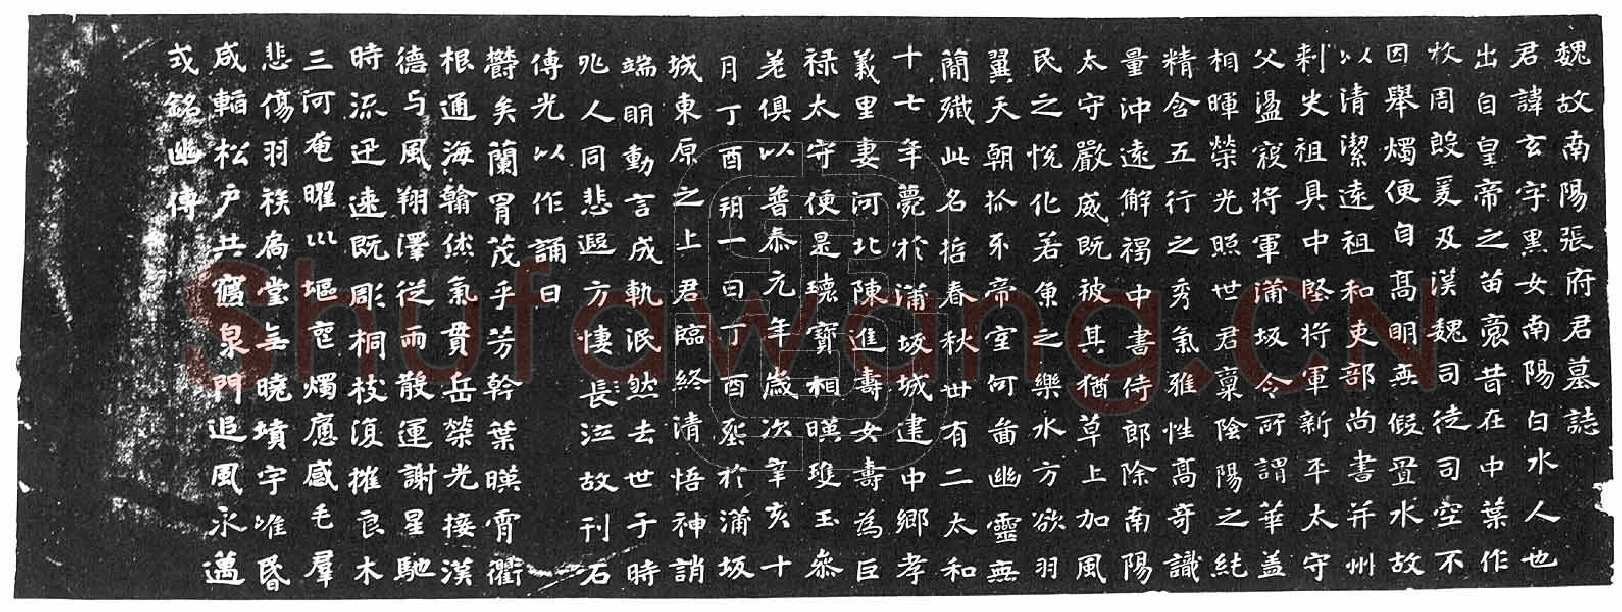 魏故南陽張府君墓誌
君諱玄字黑女南陽白水人也
出自皇帝之苗裔昔在中葉作
牧周殷爰及漢魏司徒司空不
因舉燭便自高明無假置水故
以清潔遠祖和吏部尚書并州
刺史祖具中堅將軍新平太守
父盪寇將軍蒲坂令所謂華蓋
相暉榮光照世君稟陰陽之純
精含五行之秀氣雅性高奇識
量沖遠解褐中書侍郎除南陽
太守嚴威既被其猶草上加風
民之悅化若魚之樂水方欲羽
翼天朝抓牙帝室何啚幽靈無
簡殲此名哲春秋卅有二太和
十七年薨於蒲坂城建中鄉孝
義里妻河北陳進壽女壽為巨
祿太守便是瓌寶相暎瓊玉參
差俱以普泰元年歲次辛亥十
月丁酉朔一日丁酉葬於蒲坂
城東原之上君臨終清悟神誚
端明動言成軌泯然去世于時
兆人同悲遐方悽長泣故刊石
傳光以作誦曰
欝矣蘭冑茂乎芳幹葉暎霄衢
根通海翰烋氣貫岳榮光接漢
德与風翔澤從雨散運謝星馳
時流迅速既彫桐枝復摧良木
三河奄曜巛塸寑燭應感毛羣
悲傷羽族扃堂無曉墳宇唯昏
咸韜松戶共寢泉門追風永邁
式銘幽傳
Shufawang.CN